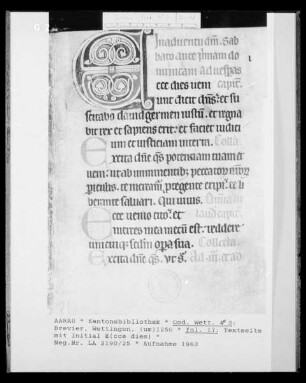 In adventu dni. Sab
bato ante primam do
minicam ad vespas
ecce dies veni capit.
unt dicit dns. et su
scitabo david germen iustu. et regna
bit rex et sapiens erit. et faciet iudici
um et iusticiam in terra. Collecta.
Excita dne qs potenciam tuam et
veni. ut ab imminentib; peccator
periculis. et mereamr protegente eripi. te li
berante salvari. Qui vivis.
Ecce venio cito. et capit.
merces mea mecu est. reddere
unicuiq; scdm opera sua. Collecta.
Excita dne qs.
AARAU * Kantonsbibliothek * Cod. Wett. 4° 2:
Brevier. Wettingen, (um)1256 * fol. 17: Textseite
mit Initial E(cce dies) *
Neg.Nr. LA 2190/25 * Aufnahme 1963